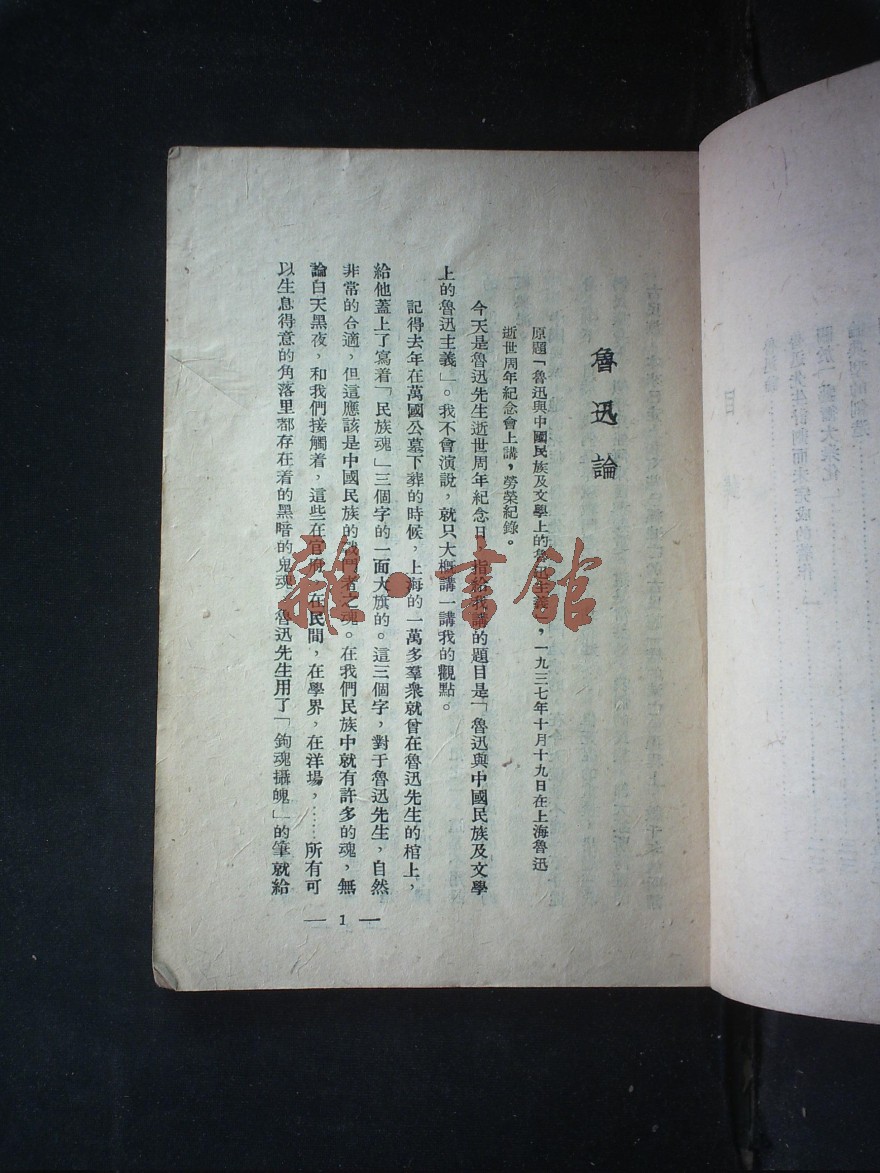 魯迅論
原題「魯迅與中國民族及文學上的魯迅主義」,一九三七年十月十九日在上海魯迅
逝世周年紀念會上講,勞榮紀錄。
今天是魯迅先生逝世周年紀念日,指給我講的題目是「魯迅與中國民族及文學
上的魯迅主義」。我不會演說,就只大概講一講我的觀點。
記得去年在萬國公墓下葬的時候,上海的一萬多羣衆就曾在魯迅先生的棺上,
給他蓋上了寫着「民族魂」三個字的一面大旗的。這三個字,對于魯迅先生,自然
非常的合適,但這應該是中國民族的戰鬥者之魂。在我們民族中就有許多的魂,無
論白天黑夜,和我們接觸着,這些在官府,在民間,在學界,在洋場,……所有可
以生息得意的角落里都存在着的黑暗的鬼魂,魯迅先生用了「鉤魂攝魄」的筆就給
— 1 —
雜·書館
目